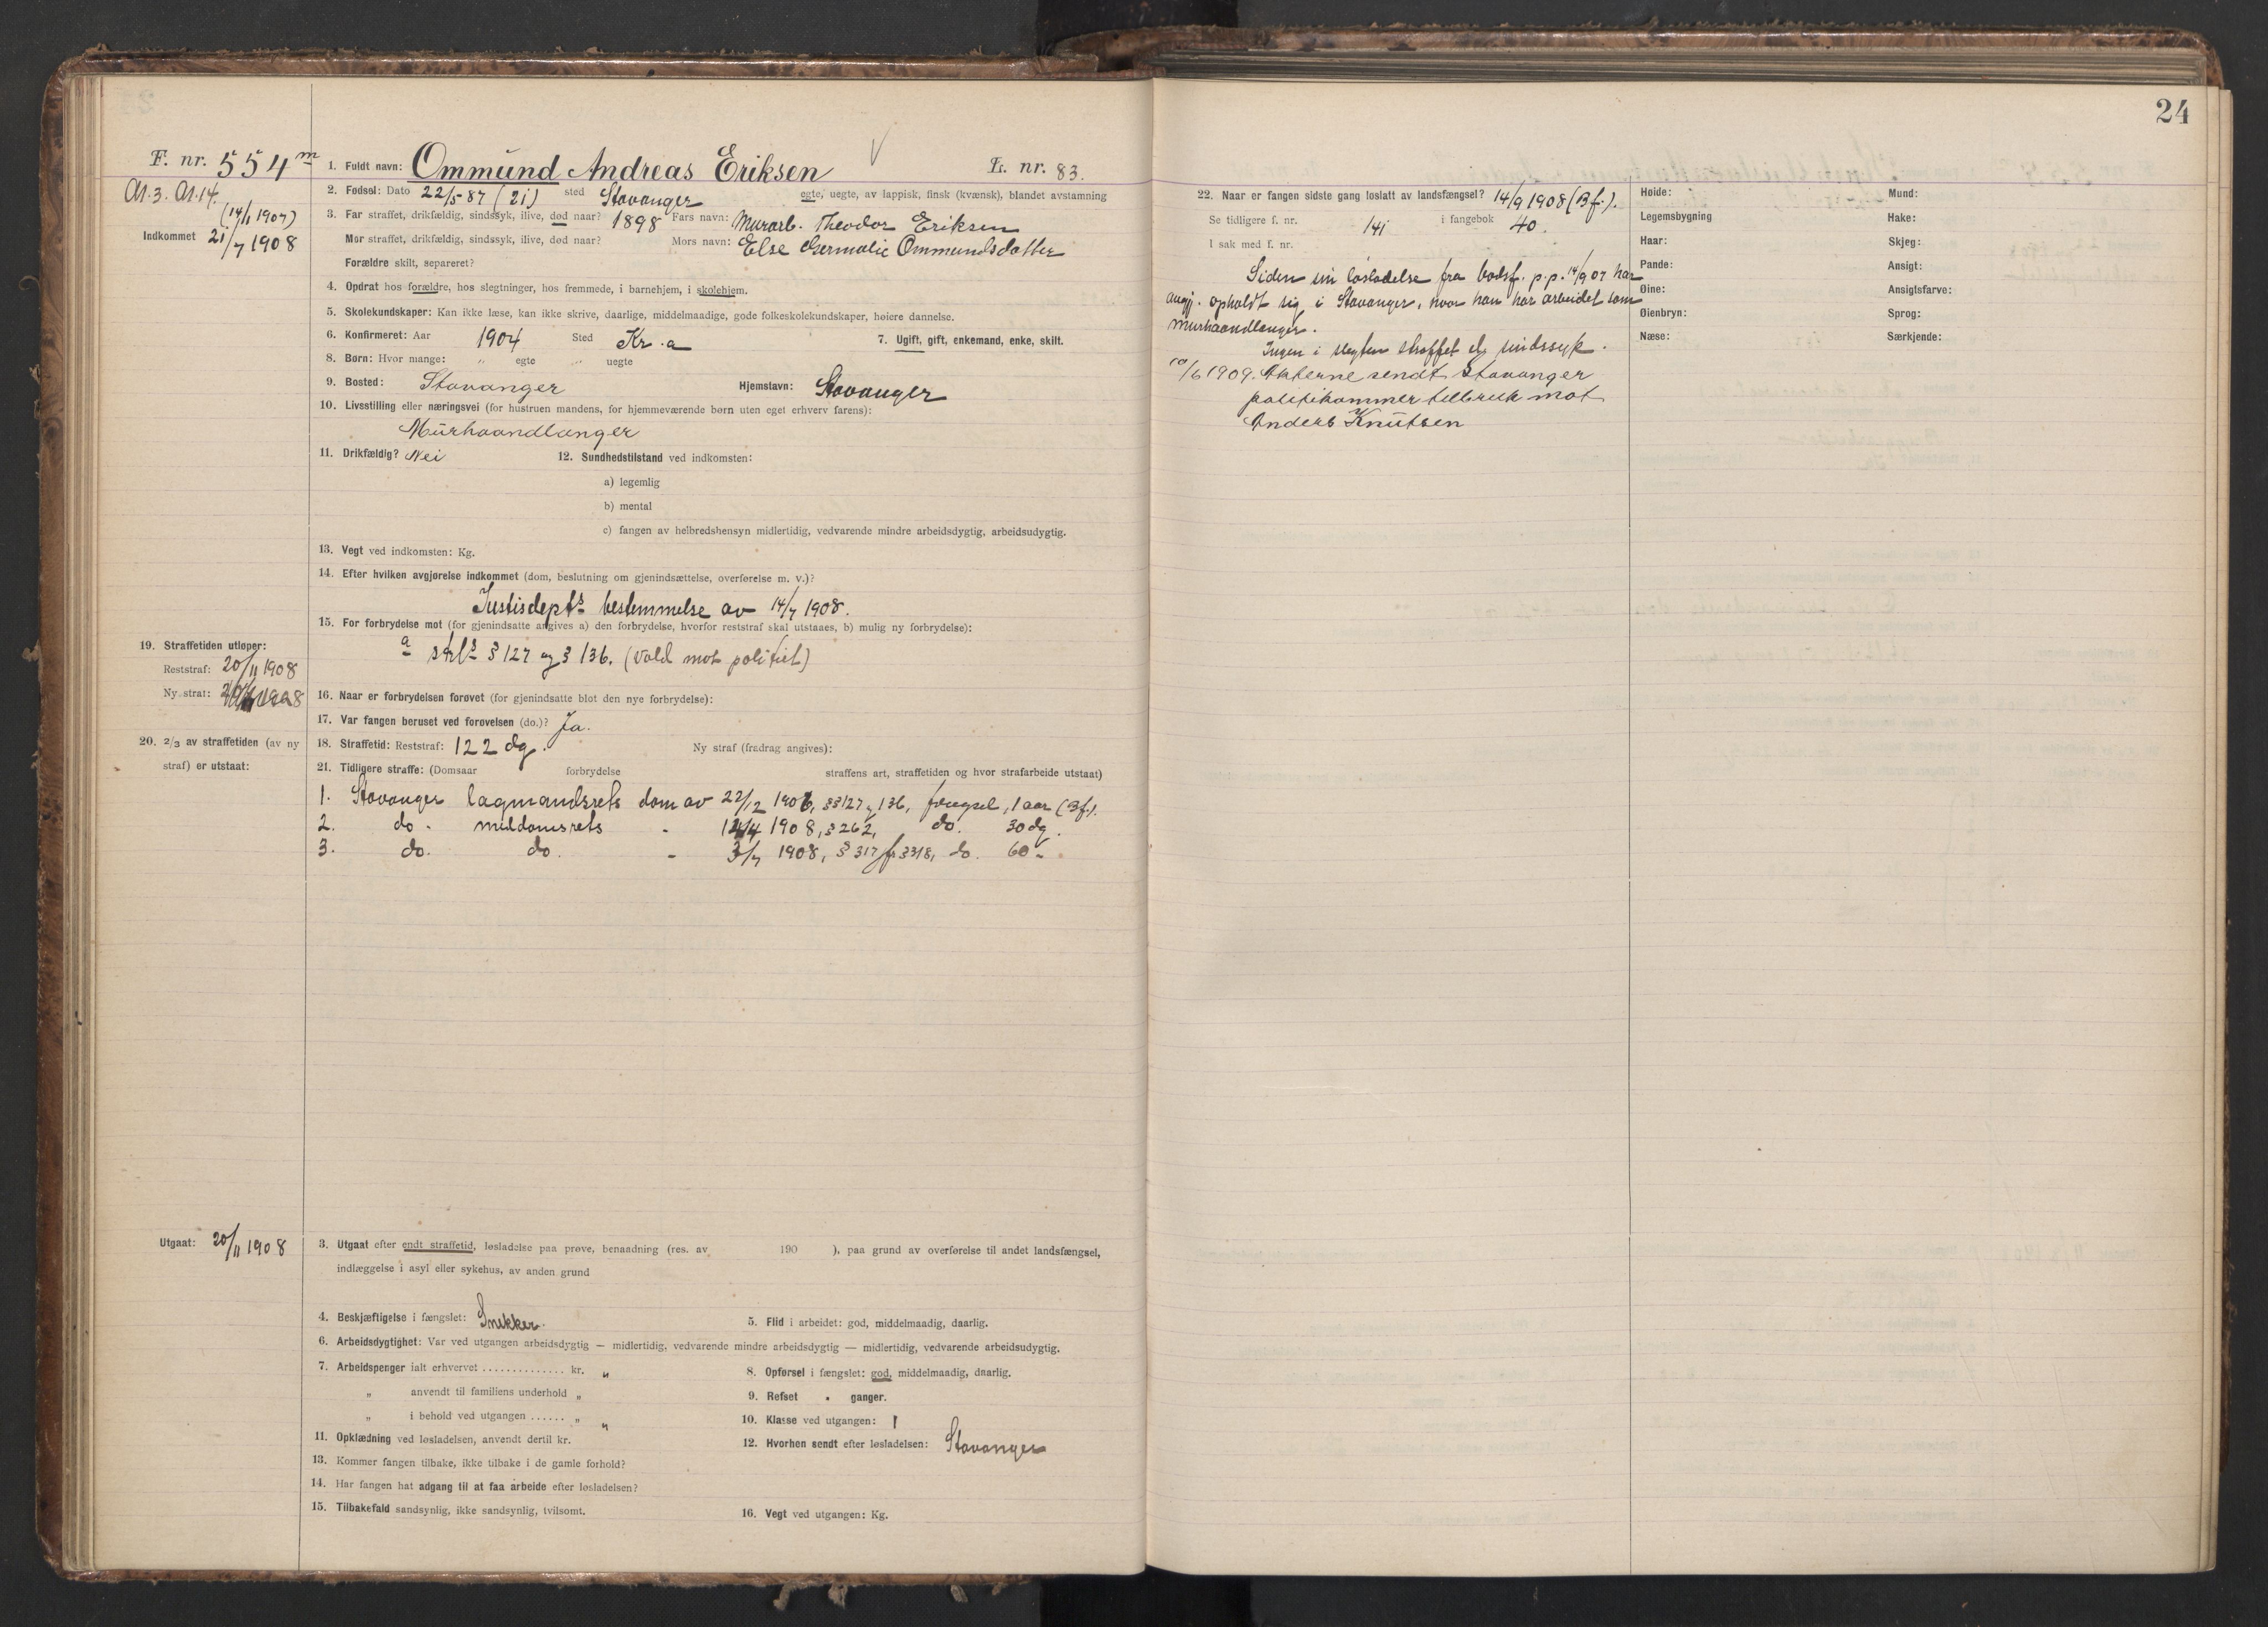 24
F. nr. 554 m
1. Fuldt navn: Ommund Andreas Eriksen
L. nr. 83.
A.3. A.14.
(14/1 1907)
Indkommet 21/7 1908
2. Fødsel: Dato 22/5-87 (21) sted Stavanger egte, uegte, av lappisk, finsk (kvænsk), blandet avstamning
3. Far straffet, drikfældig, sindssyk, ilive, død naar? 1898 Fars navn: Murarb. Theodor Eriksen
Mor straffet, drikfældig, sindssyk, ilive, død naar? Mors navn: Else Germalie Ommundsdatter
Forældre skilt, separeret?
4. Opdrat hos forældre, hos slegtninger, hos fremmede, i barnehjem, i skolehjem.
5. Skolekundskaper: Kan ikke læse, kan ikke skrive, daarlige, middelmaadige, gode folkeskolekundskaper, høiere dannelse.
6. Konfirmeret: Aar 1904 Sted Kr.a 7. Ugift, gift, enkemand, enke, skilt.
8. Børn: Hvor mange: " egte " uegte
9. Bosted: Stavanger Hjemstavn: Stavanger
10. Livsstilling eller næringsvei (for hustruen mandens, for hjemmeværende børn uten eget erhverv farens):
Murhaandlanger
11. Drikfældig? Nei 12. Sundhedstilstand ved indkomsten:
a) legemlig
b) mental
c) fangen av helbredshensyn midlertidig, vedvarende mindre arbeidsdygtig, arbeidsudygtig.
13. Vegt ved indkomsten: Kg.
14. Efter hvilken avgjørelse indkommet (dom, beslutning om gjenindsættelse, overførelse m. v.)?
Justisdepts bestemmelse av 14/7 1908.
15. For forbrydelse mot (for gjenindsatte angives a) den forbrydelse, hvorfor reststraf skal utstaaes, b) mulig ny forbrydelse):
a strl's § 127 og § 136. (vold mot politiet)
19. Straffetiden utløper:
Reststraf: 20/11 1908
Ny straf:
16. Naar er forbrydelsen forøvet (for gjenindsatte blot den nye forbrydelse):
17. Var fangen beruset ved forøvelsen (do.)? Ja.
20. 2/3 av straffetiden (av ny straf) er utstaat:
18. Straffetid: Reststraf: 122 dg. Ny straf (fradrag angives):
21. Tidligere straffe: (Domsaar forbrydelse straffens art, straffetiden og hvor strafarbeide utstaat)
1. Stavanger lagmandsrets dom av 22/12 1906, §§ 127 og 136, fængsel, 1 aar (Bf.).
2. do. meddomsrets - 14/4 1908, § 262, do. 30 dg.
3. do. do. - 3/7 1908, § 317 jfr § 318, do. 60 -
Utgaat: 20/11 1908
3. Utgaat efter endt straffetid, løsladelse paa prøve, benaadning (res. av 190 ), paa grund av overførelse til andet landsfængsel,
indlæggelse i asyl eller sykehus, av anden grund
4. Beskjæftigelse i fængslet: Snekker. 5. Flid i arbeidet: god, middelmaadig, daarlig.
6. Arbeidsdygtighet: Var ved utgangen arbeidsdygtig — midlertidig, vedvarende mindre arbeidsdygtig — midlertidig, vedvarende arbeidsudygtig.
7. Arbeidspenger ialt erhvervet .............. kr. " 8. Opførsel i fængslet: god, middelmaadig, daarlig.
" anvendt til familiens underhold " 9. Refset " ganger.
" i behold ved utgangen ...... " " 10. Klasse ved utgangen: 1
11. Opklædning ved løsladelsen, anvendt dertil kr. 12. Hvorhen sendt efter løsladelsen: Stavanger
13. Kommer fangen tilbake, ikke tilbake i de gamle forhold?
14. Har fangen hat adgang til at faa arbeide efter løsladelsen?
15. Tilbakefald sandsynlig, ikke sandsynlig, tvilsomt. 16. Vegt ved utgangen: Kg.
22. Naar er fangen sidste gang løslatt av landsfængsel? 14/9 1908 (Bf.).
Se tidligere f. nr. 141 i fangebok 40.
I sak med f. nr.
Siden sin løsladelse fra botsf. p.p. 14/9 07 har
angj. opholdt sig i Stavanger, hvor han har arbeidet som
murhaandlanger.
Ingen i slegten straffet el. sindssyk.
10/6 1909. Akterne sendt Stavanger
politikammer til bruk mot
Anders Knutsen
Høide: Mund:
Legemsbygning Hake:
Haar: Skjeg:
Pande: Ansigt:
Øine: Ansigtsfarve:
Øienbryn: Sprog:
Næse: Særkjende: